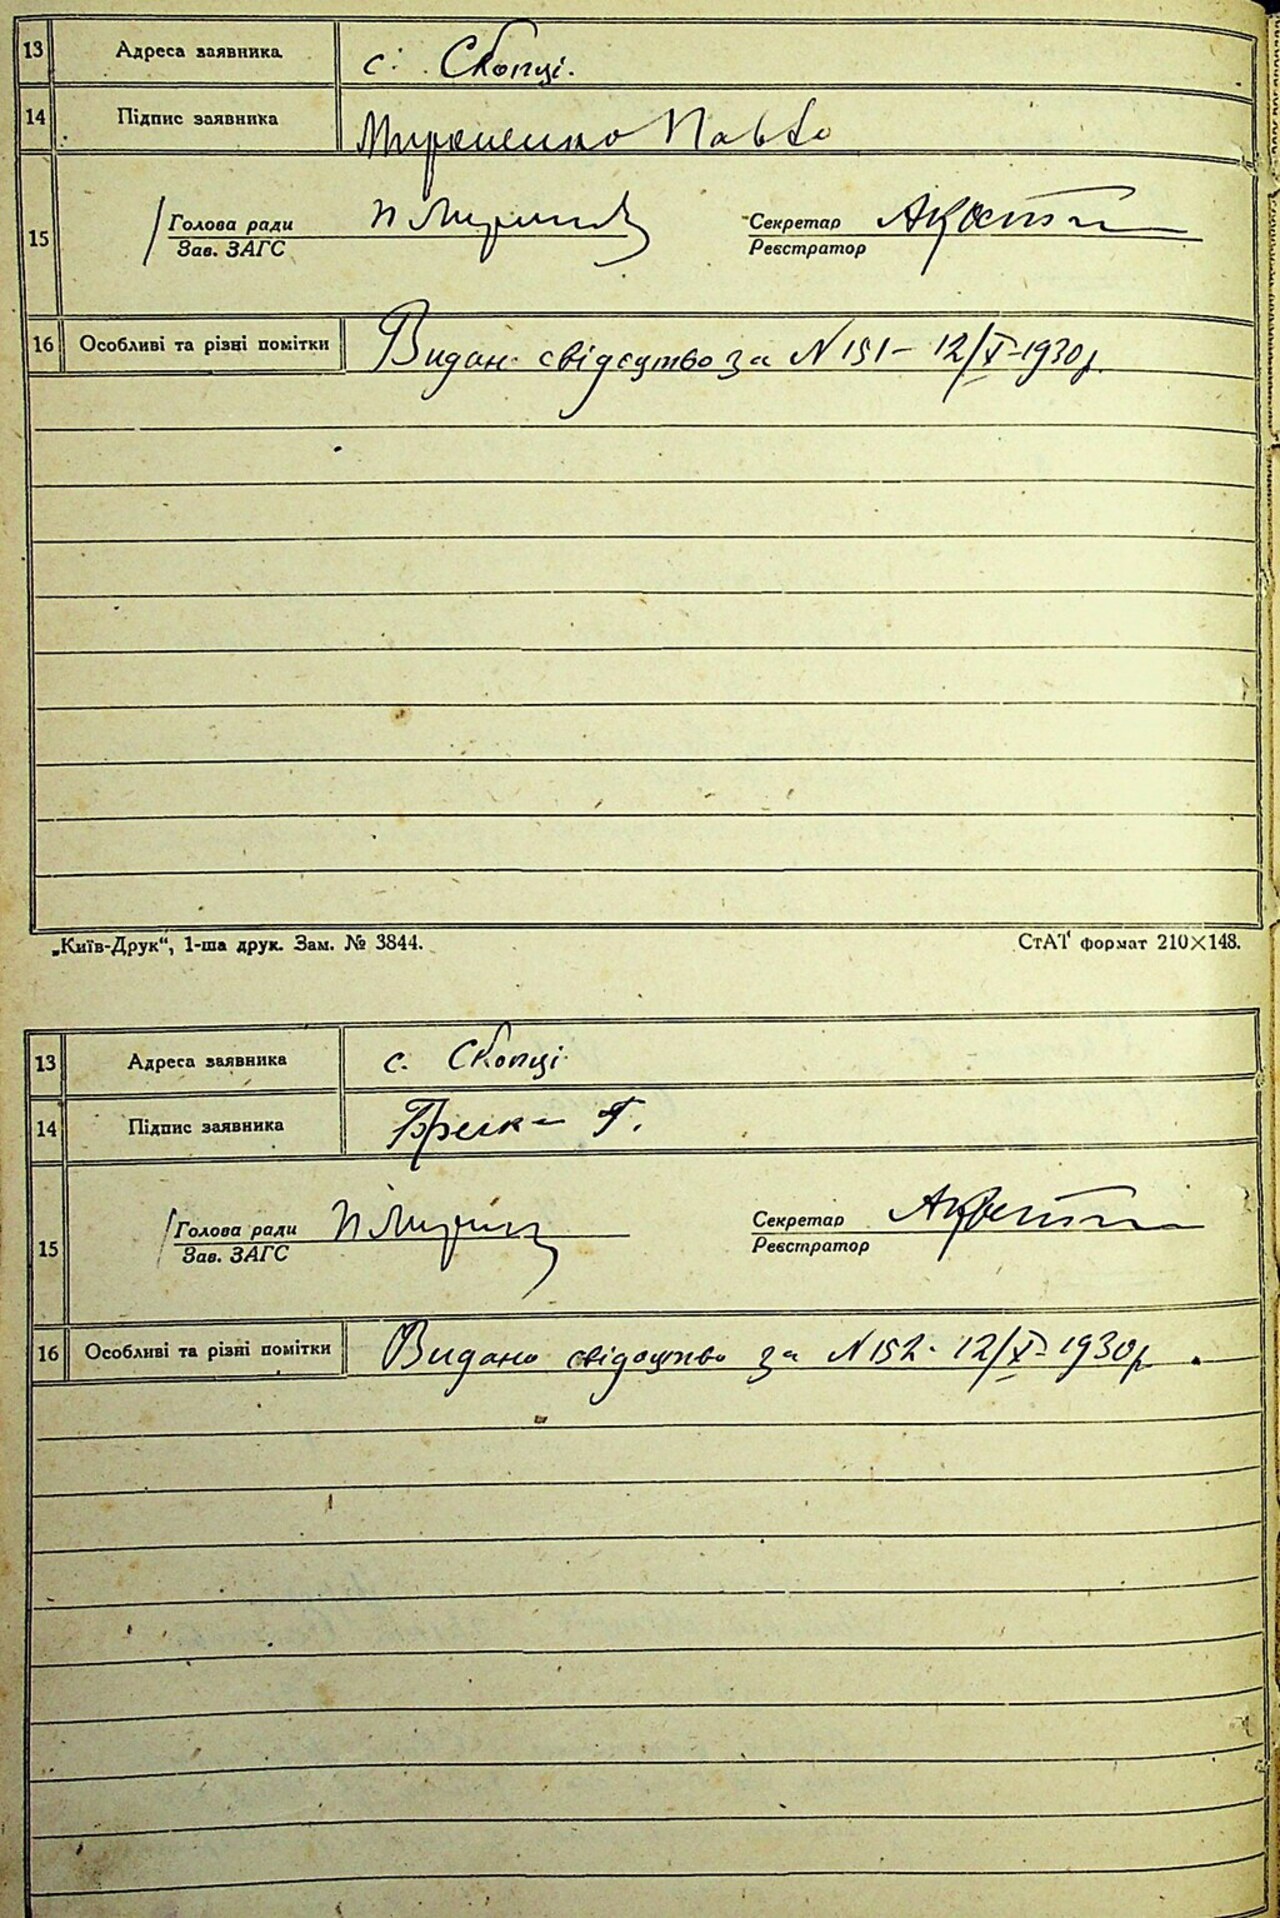 13 Адреса заявника с. Скопці.
14 Підпис заявника Мироненко Павло
15 Голова ради Секретар
Зав. ЗАГС Реєстратор
16 Особливі та різні помітки Видан. свідоцтво за N 151 – 12/X–1930р.
„Київ-Друк“, 1-ша друк. Зам. № 3844. СтАТ формат 210×148.
13 Адреса заявника с. Скопці
14 Підпис заявника Г.
15 Голова ради Секретар
Зав. ЗАГС Реєстратор
16 Особливі та різні помітки Видано свідоцтво за N 152. 12/X–1930р.